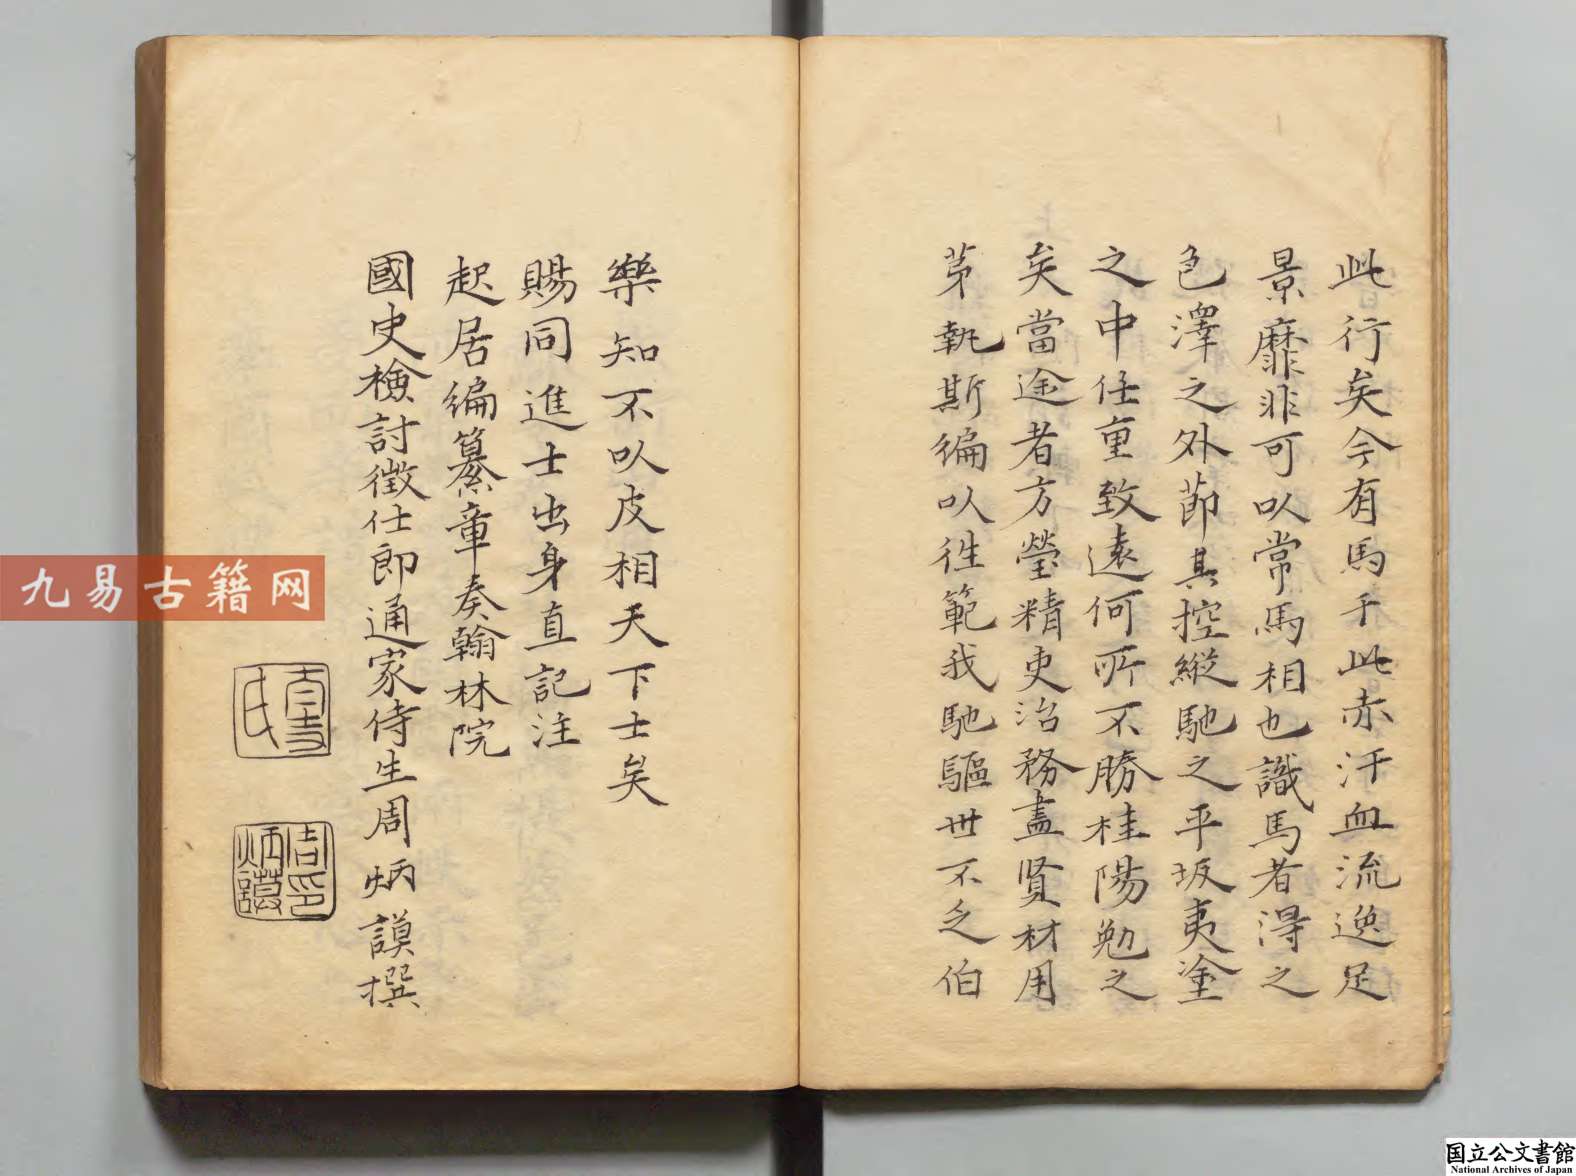 此行矣今有馬于此赤汗血流逸足
景靡非可㕥常馬相也識馬者淂之
色澤之外節其控縱馳之平坂夷塗
之中任重致遠何所不勝桂陽勉之
矣當途者方瑩精吏治務盡賢材用
苐執斯編㕥徃範我馳驅世不乏伯
樂知不㕥皮相天下士矣
賜同進士出身直記注
起居編纂章奏翰林院
國史檢討徵仕郎通家侍生周炳謨撰
周印
炳謨
九易古籍网
国立公文書館
National Archives of Japan